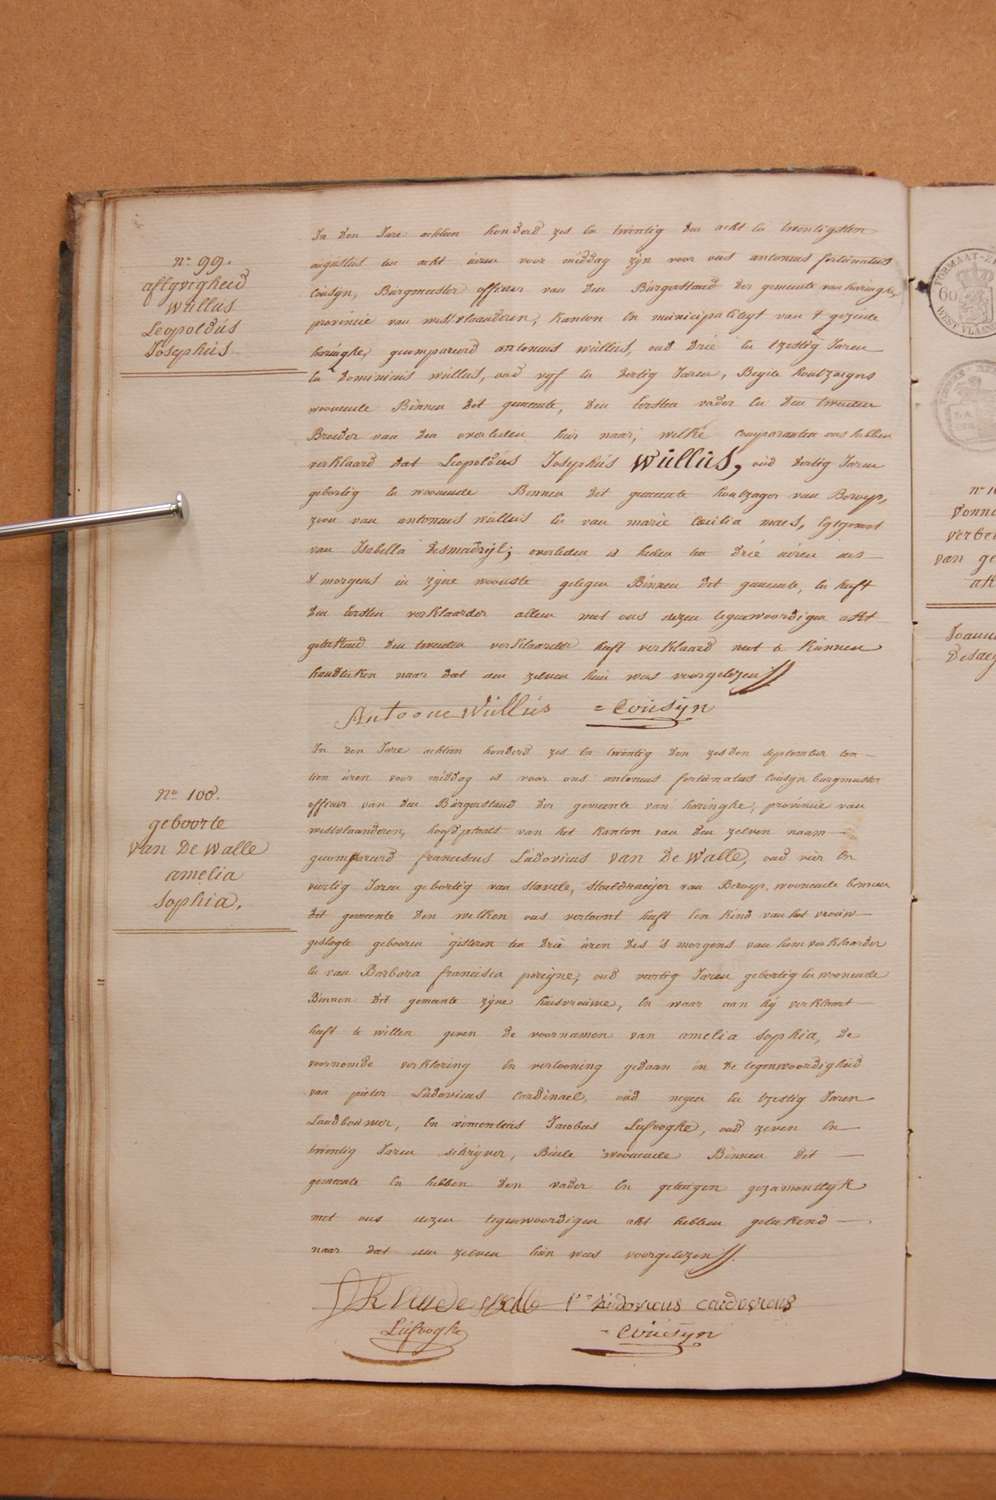 n.° 99.
aflyvigheid
Wullus
Leopoldus
Josephus
In den Jare achtien honderd zes en twintig den acht en twintigsten
augustus ten acht uren voor middag zyn voor ons antonius fortunatus
Cousyn, Burgmeester officier van den Burgerstand der gemeente van haringhe,
provincie van westvlaanderen, kanton en municipaliteyt van 't gezeide
haringhe, gecompareerd antonius wullus, oud drie en tzestig Jaren
en Dominicus wullus, oud vyf en dertig Jaren, Beyde houtzagers
woonende Binnen dit gemeente, den eersten vader en den tweeden
Broeder van den overleden hier naar, welke comparanten ons hebben
verklaard dat Leopoldus Josephus Wullus, oud dertig Jaren
gebortig en woonende Binnen dit gemeente houtzager van Beroep,
zoon van antonius wullus en van marie Cecilia maes, egtgenoot
van Isabella Desmadryl; overleden is heden ten drie uren des
's morgens in zyne wooniste gelegen Binnen dit gemeente, en heeft
den eersten verklaarder alleen met ons dezen tegenwoordigen acht
geteekend den tweeden verklaarder heeft verklaard niet te kunnen
handteeken naar dat aen zelven hun was voorgelezen
Antoone Wullus = Cousyn
In den Jare achtien honderd zes en twintig den zesden september ten
tien uren voor middag is voor ons antonius fortunatus Cousyn burgmeester
officier van den Burgerstand der gemeente van haringhe, provincie van
westvlaanderen, hoofdplaats van het kanton van den zelven naam
n.° 100.
geboorte
Van De Walle
amelia
Sophia.
gecompareerd franciscus Ludovicus van De Walle, oud vier en
viertig Jaren gebortig van Stavele, Stoeldraeijer van Beroep, woonende binnen
dit gemeente den welken ons vertoont heeft een kind van het vrouw
geslagte gebooren gisteren ten drie uren des 's morgens van hem verklaarder
en van Barbara francisca pereyne, oud veertig Jaren gebortig en woonende
Binnen dit gemeente zyne huisvrouwe, en waar aan hy verklaart
heeft te willen geven de voornamen van amelia Sophia, de
voornomde verklaring en vertooning gedaan in de tegenwoordigheid
van pieter Ludovicus Cardinael, oud negen en tzestig Jaren
Landbouwer, en vincentius Jacobus Lafooghe, oud zeven en
twintig Jaren schryver, Beide woonende Binnen dit
gemeente en hebben den vader en getuigen gezamentlyk
met ons dezen tegenwoordigen akt hebben geteekend
naar dat aen zelven hun was voorgelezen
Ludovicus
Lafooghe = Cousyn
FORMAAT-Z
60
WEST VLA
n.° 10
Vonn
verbe
van ge
Joann
Desae